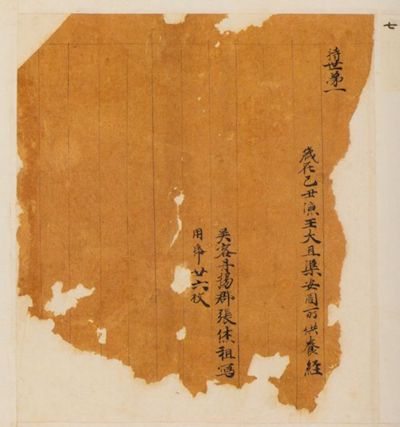 七
持世第一
歲在己丑涼王大且渠安周所供養經
吳客丹揚郡張烋祖寫
用帋廿六枚